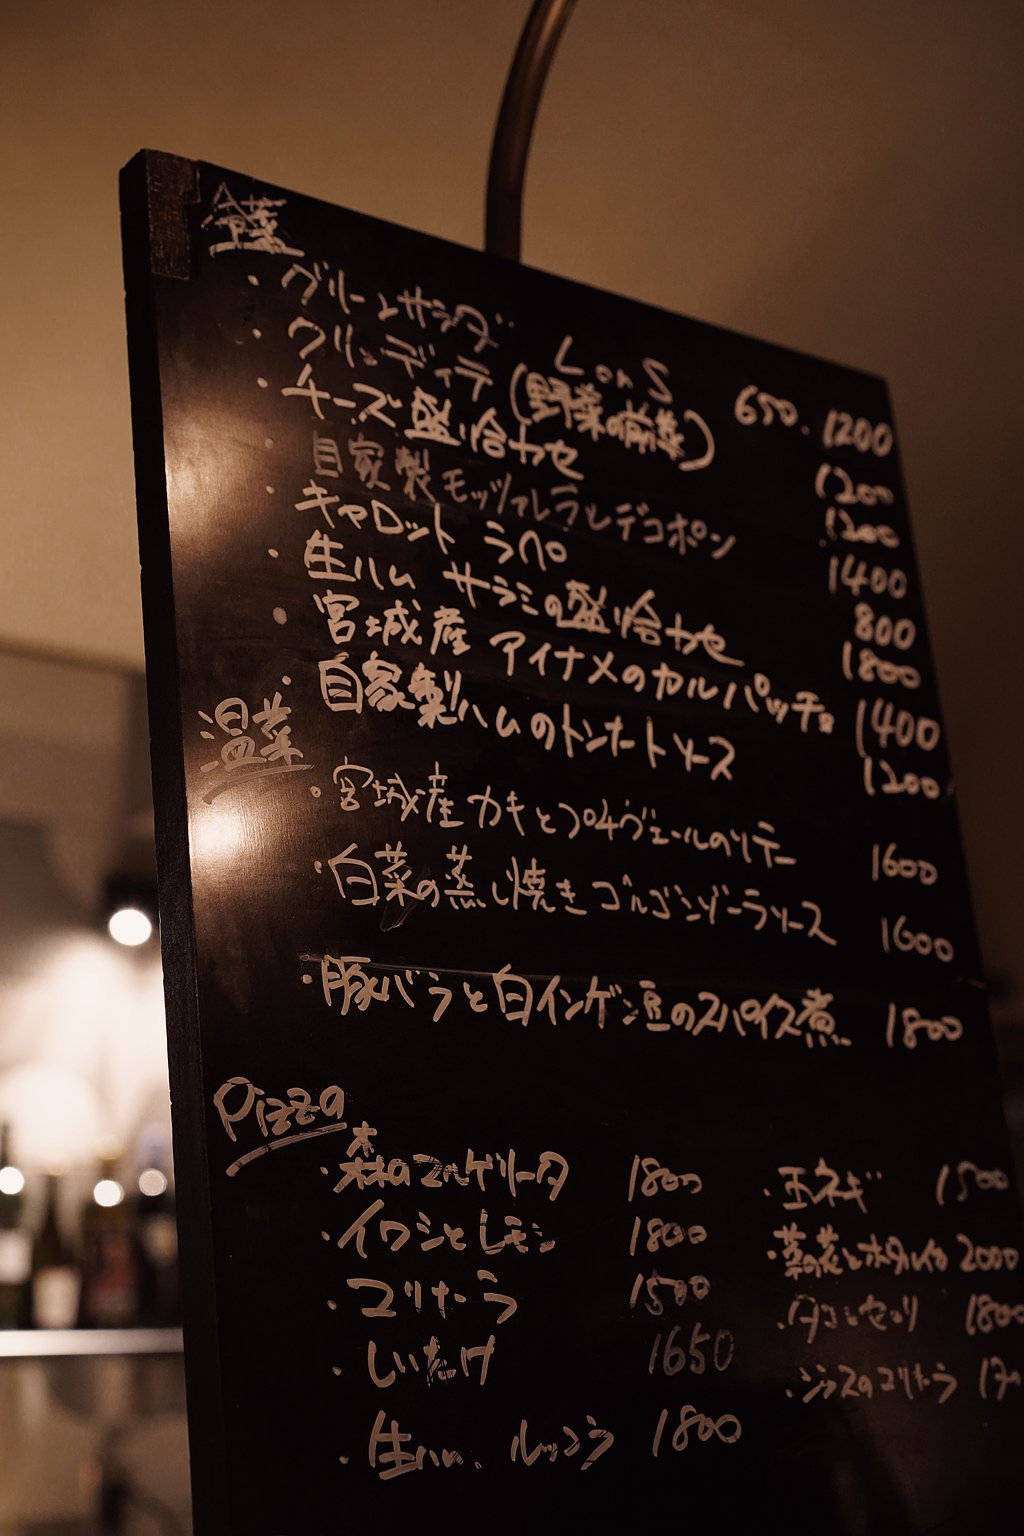 冷菜
・グリーンサラダ L or S 650. 1200
・クリュディテ(野菜の前菜) 1200
・チーズ盛り合わせ 1200
・自家製モッツァレラとデコポン 1400
・キャロットラペ 800
・生ハム サラミの盛り合わせ 1800
・宮城産 アイナメのカルパッチョ 1400
・自家製ハムのトンナートソース 1200
温菜
・宮城産カキとプチヴェールのソテー 1600
・白菜の蒸し焼きゴルゴンゾーラソース 1600
・豚バラと白インゲン豆のスパイス煮 1800
Pizza
・森のマルゲリータ 1800
・イワシとレモン 1800
・マリナーラ 1500
・しいたけ 1650
・生ハム、ルッコラ 1800
・玉ネギ 1500
・菜の花とホタルイカ 2000
・タコとセロリ 1800
・シラスのマリナーラ